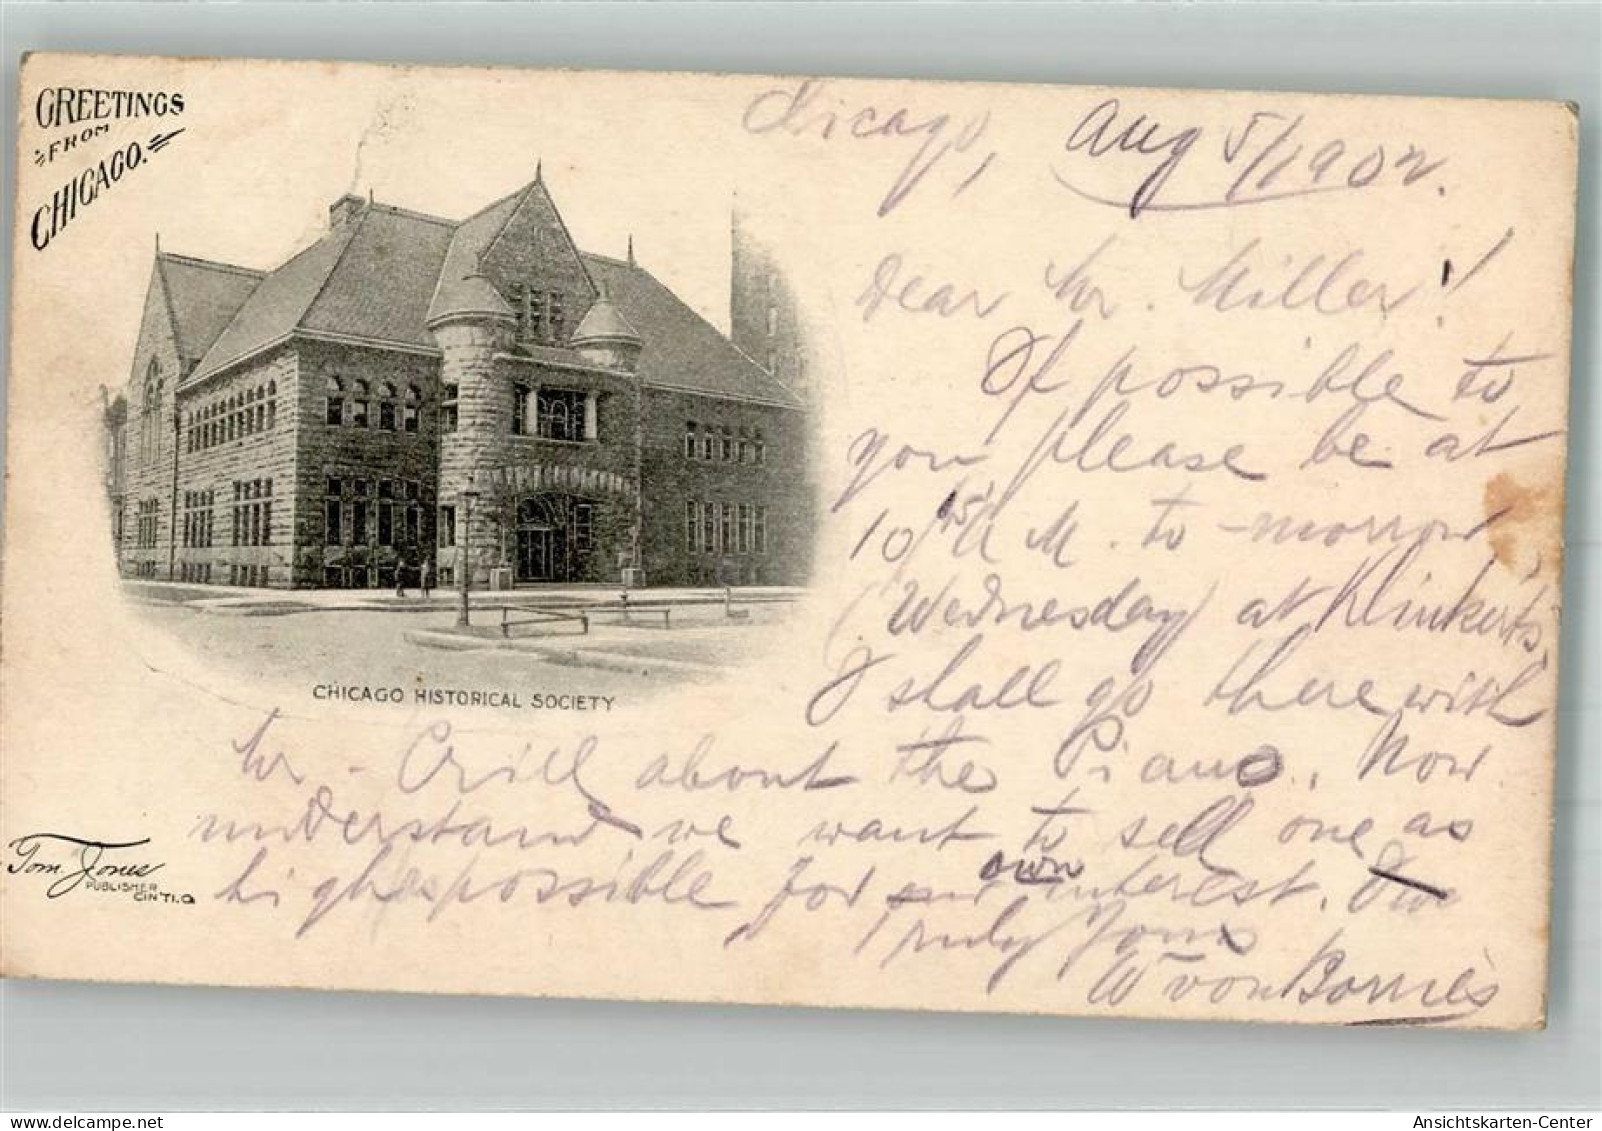 GREETINGS
FROM
CHICAGO.
Chicago, Aug 5/1902.
Dear Mr. Miller!
If possible to
you please be at
10 15 A M. to-morrow
(Wednesday) at Klinkert's,
I shall go there with
Mr. Crill about the Piano. Now
understand we want to sell one as
high as possible for our own interest.
Truly Yours
W von Borries
CHICAGO HISTORICAL SOCIETY
Tom. Jones
PUBLISHER
CIN'TI.O
Ansichtskarten-Center